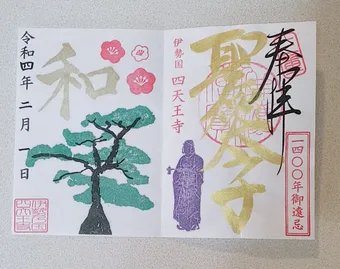 奉拝
聖太子
伊勢国 四天王寺
一四〇〇年御遠忌
和
令和四年二月一日